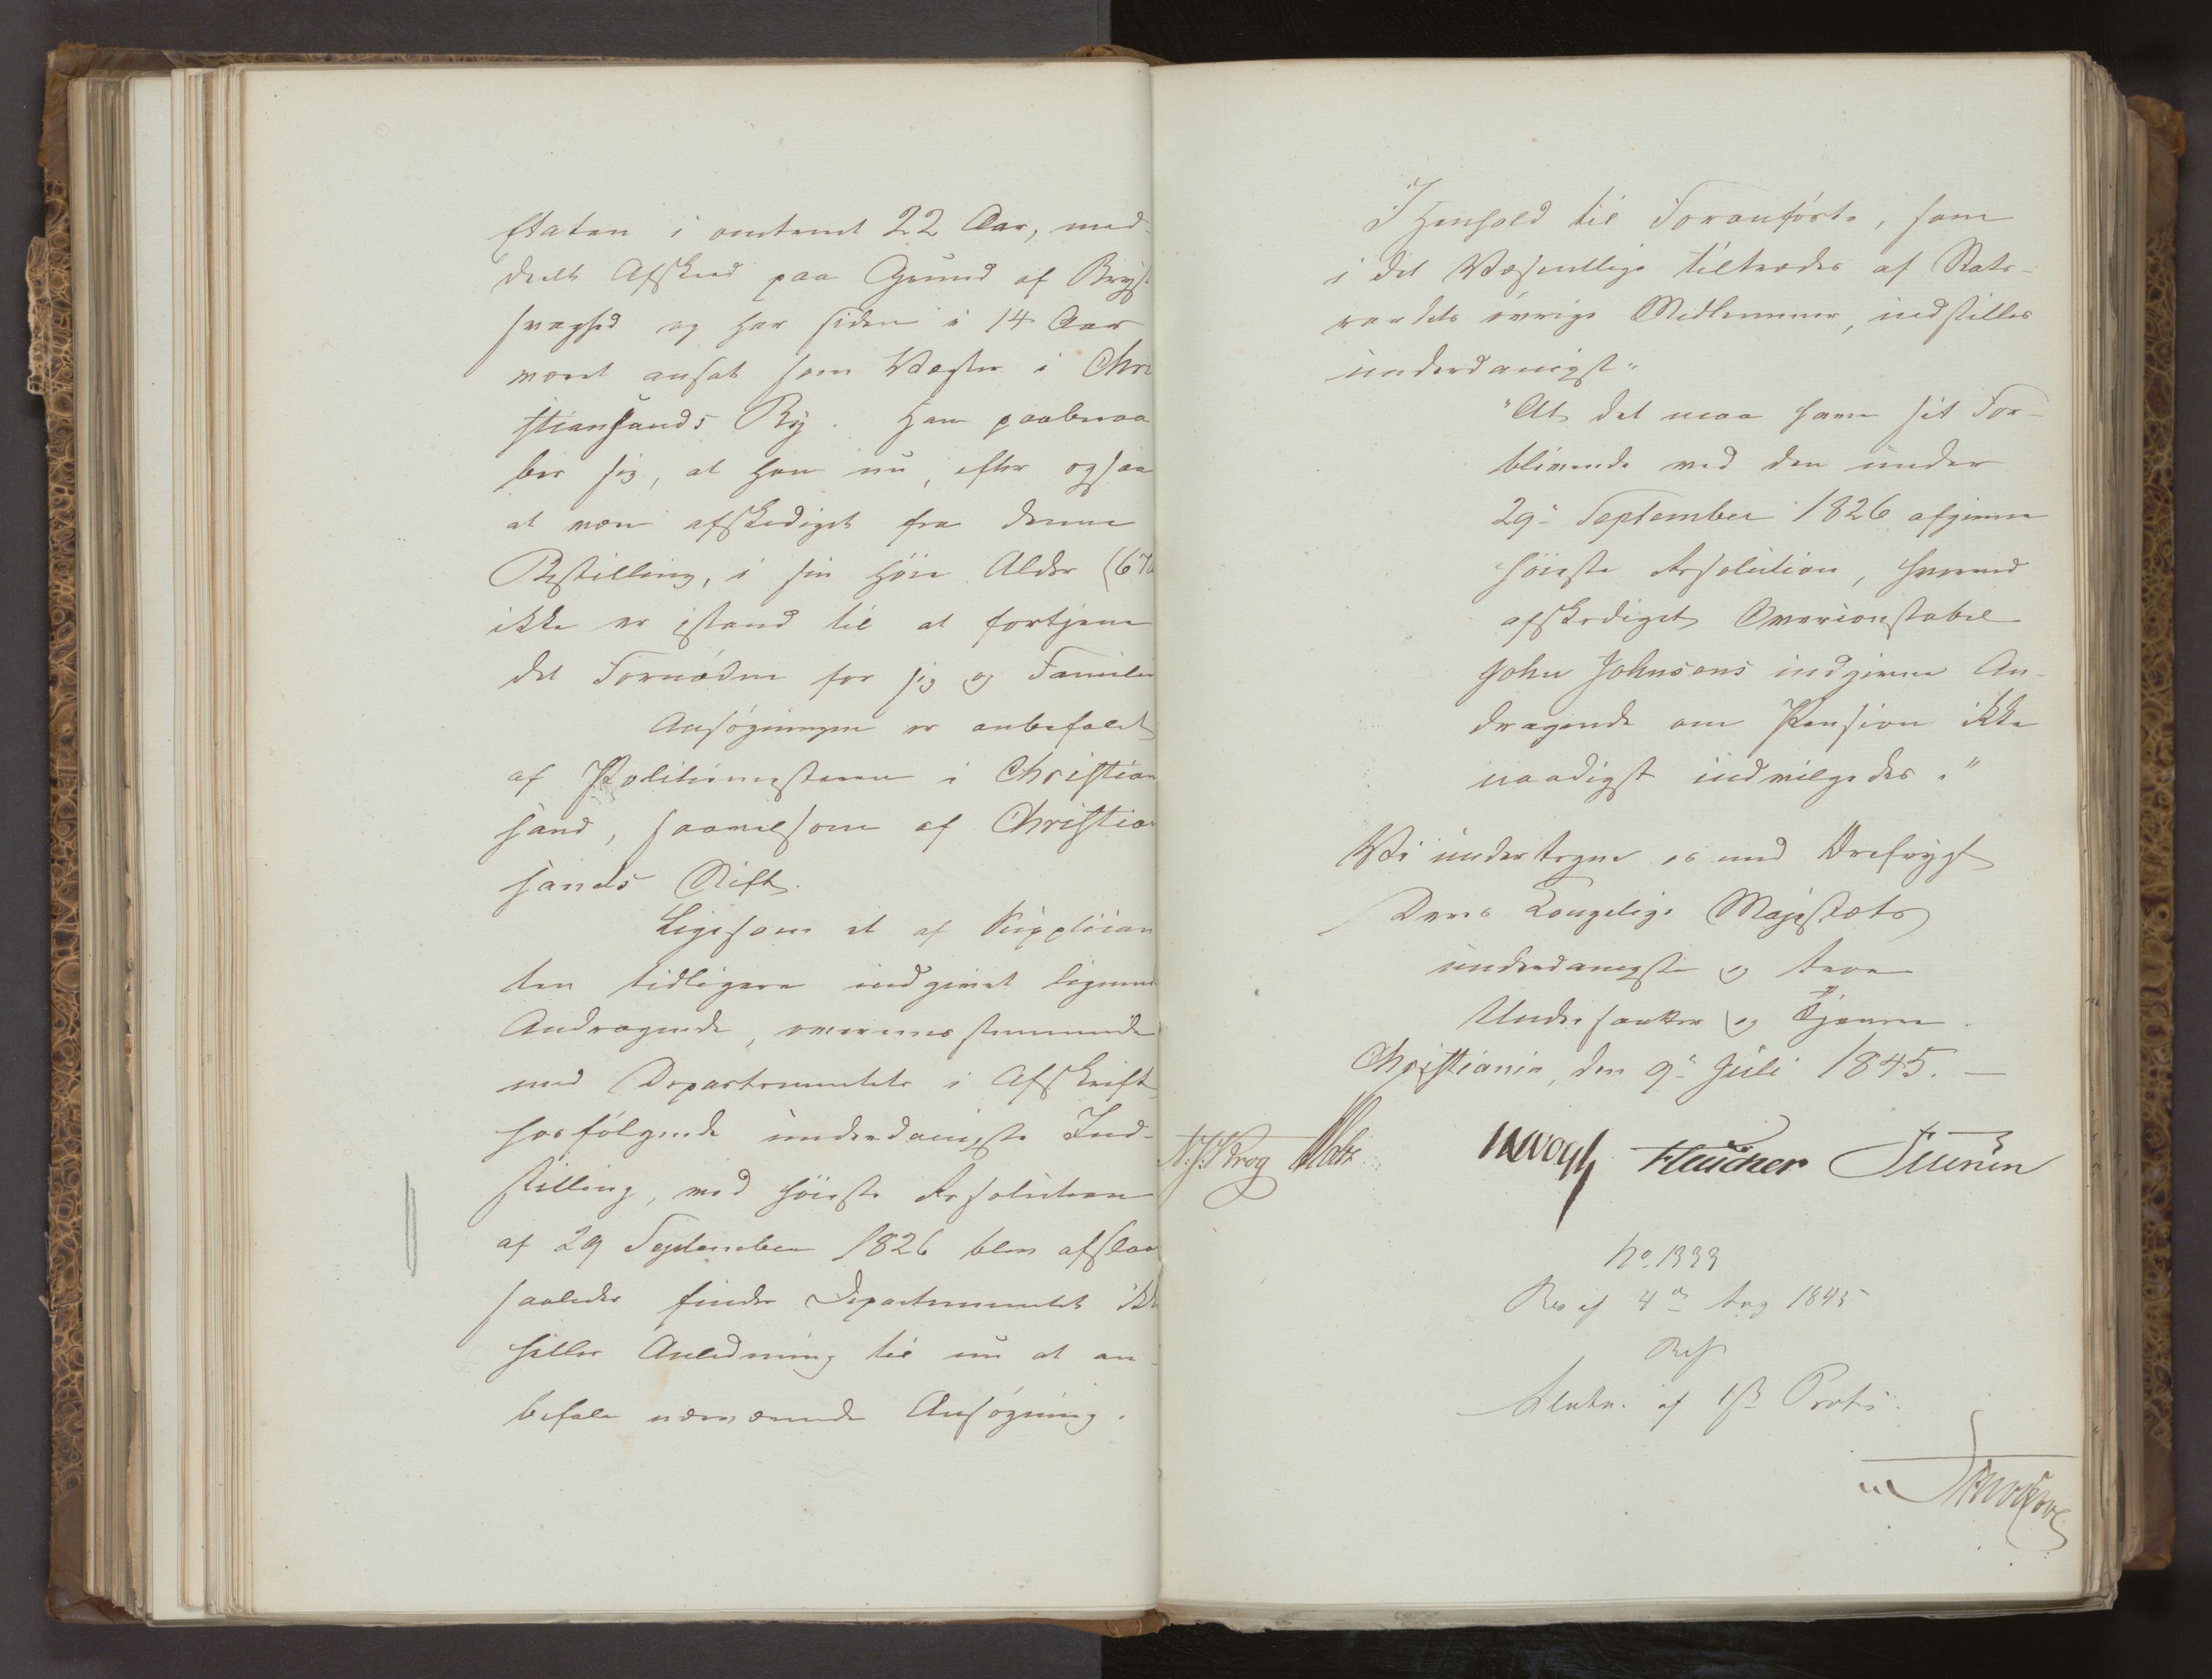 Etaten i omtrent 22 Aar, med-
deelt Afsked paa Grund af Bryst
svaghed og har siden i 14 Aar
været ansat som Vægter i Chri
stiansands By. Han paaberaa
ber sig, at han nu, efter ogsaa
at være afskediget fra denne
Bestilling, i sin høie Alder (67
ikke er istand til at fortjene
det Fornødne for sig og Familie
Ansøgningen er anbefalet
af Politimesteren i Christian
sand, saavelsom af Christian
sands Stift.
Ligesom et af Supplican
ten tidligere indgivet lignende
Andragende, overensstemmende
med Departementets i Afskrift
hosfølgende underdanigste Ind-
stilling, ved høieste Resolution
af 29 September 1826 blev afslaa
saaledes finder Departementet ikke
heller Anledning til nu at an-
befale nærværende Ansøgning.
I Henhold til Foranførte, som
i det Væsentlige tiltrædes af Stats-
raadets øvrige Medlemmer, indstilles
underdanigst:
"At det maa have sit For-
blivende ved den under
29de September 1826 afgivne
høieste Resolution, hvorved
afskediget Overconstabel
John Johnsens indgivne An-
dragende om Pension ikke
naadigst indvilgedes."
Vi undertegne os med Ærefrygt
Deres Kongelige Majestæts
underdanigste og troe
Undersaatter og Tjenere.
Christiania, den 9de Juli 1845. —
N.J. Krog Motz JH Vogh Fleischer
No 1333
Res af 4de Aug 1845